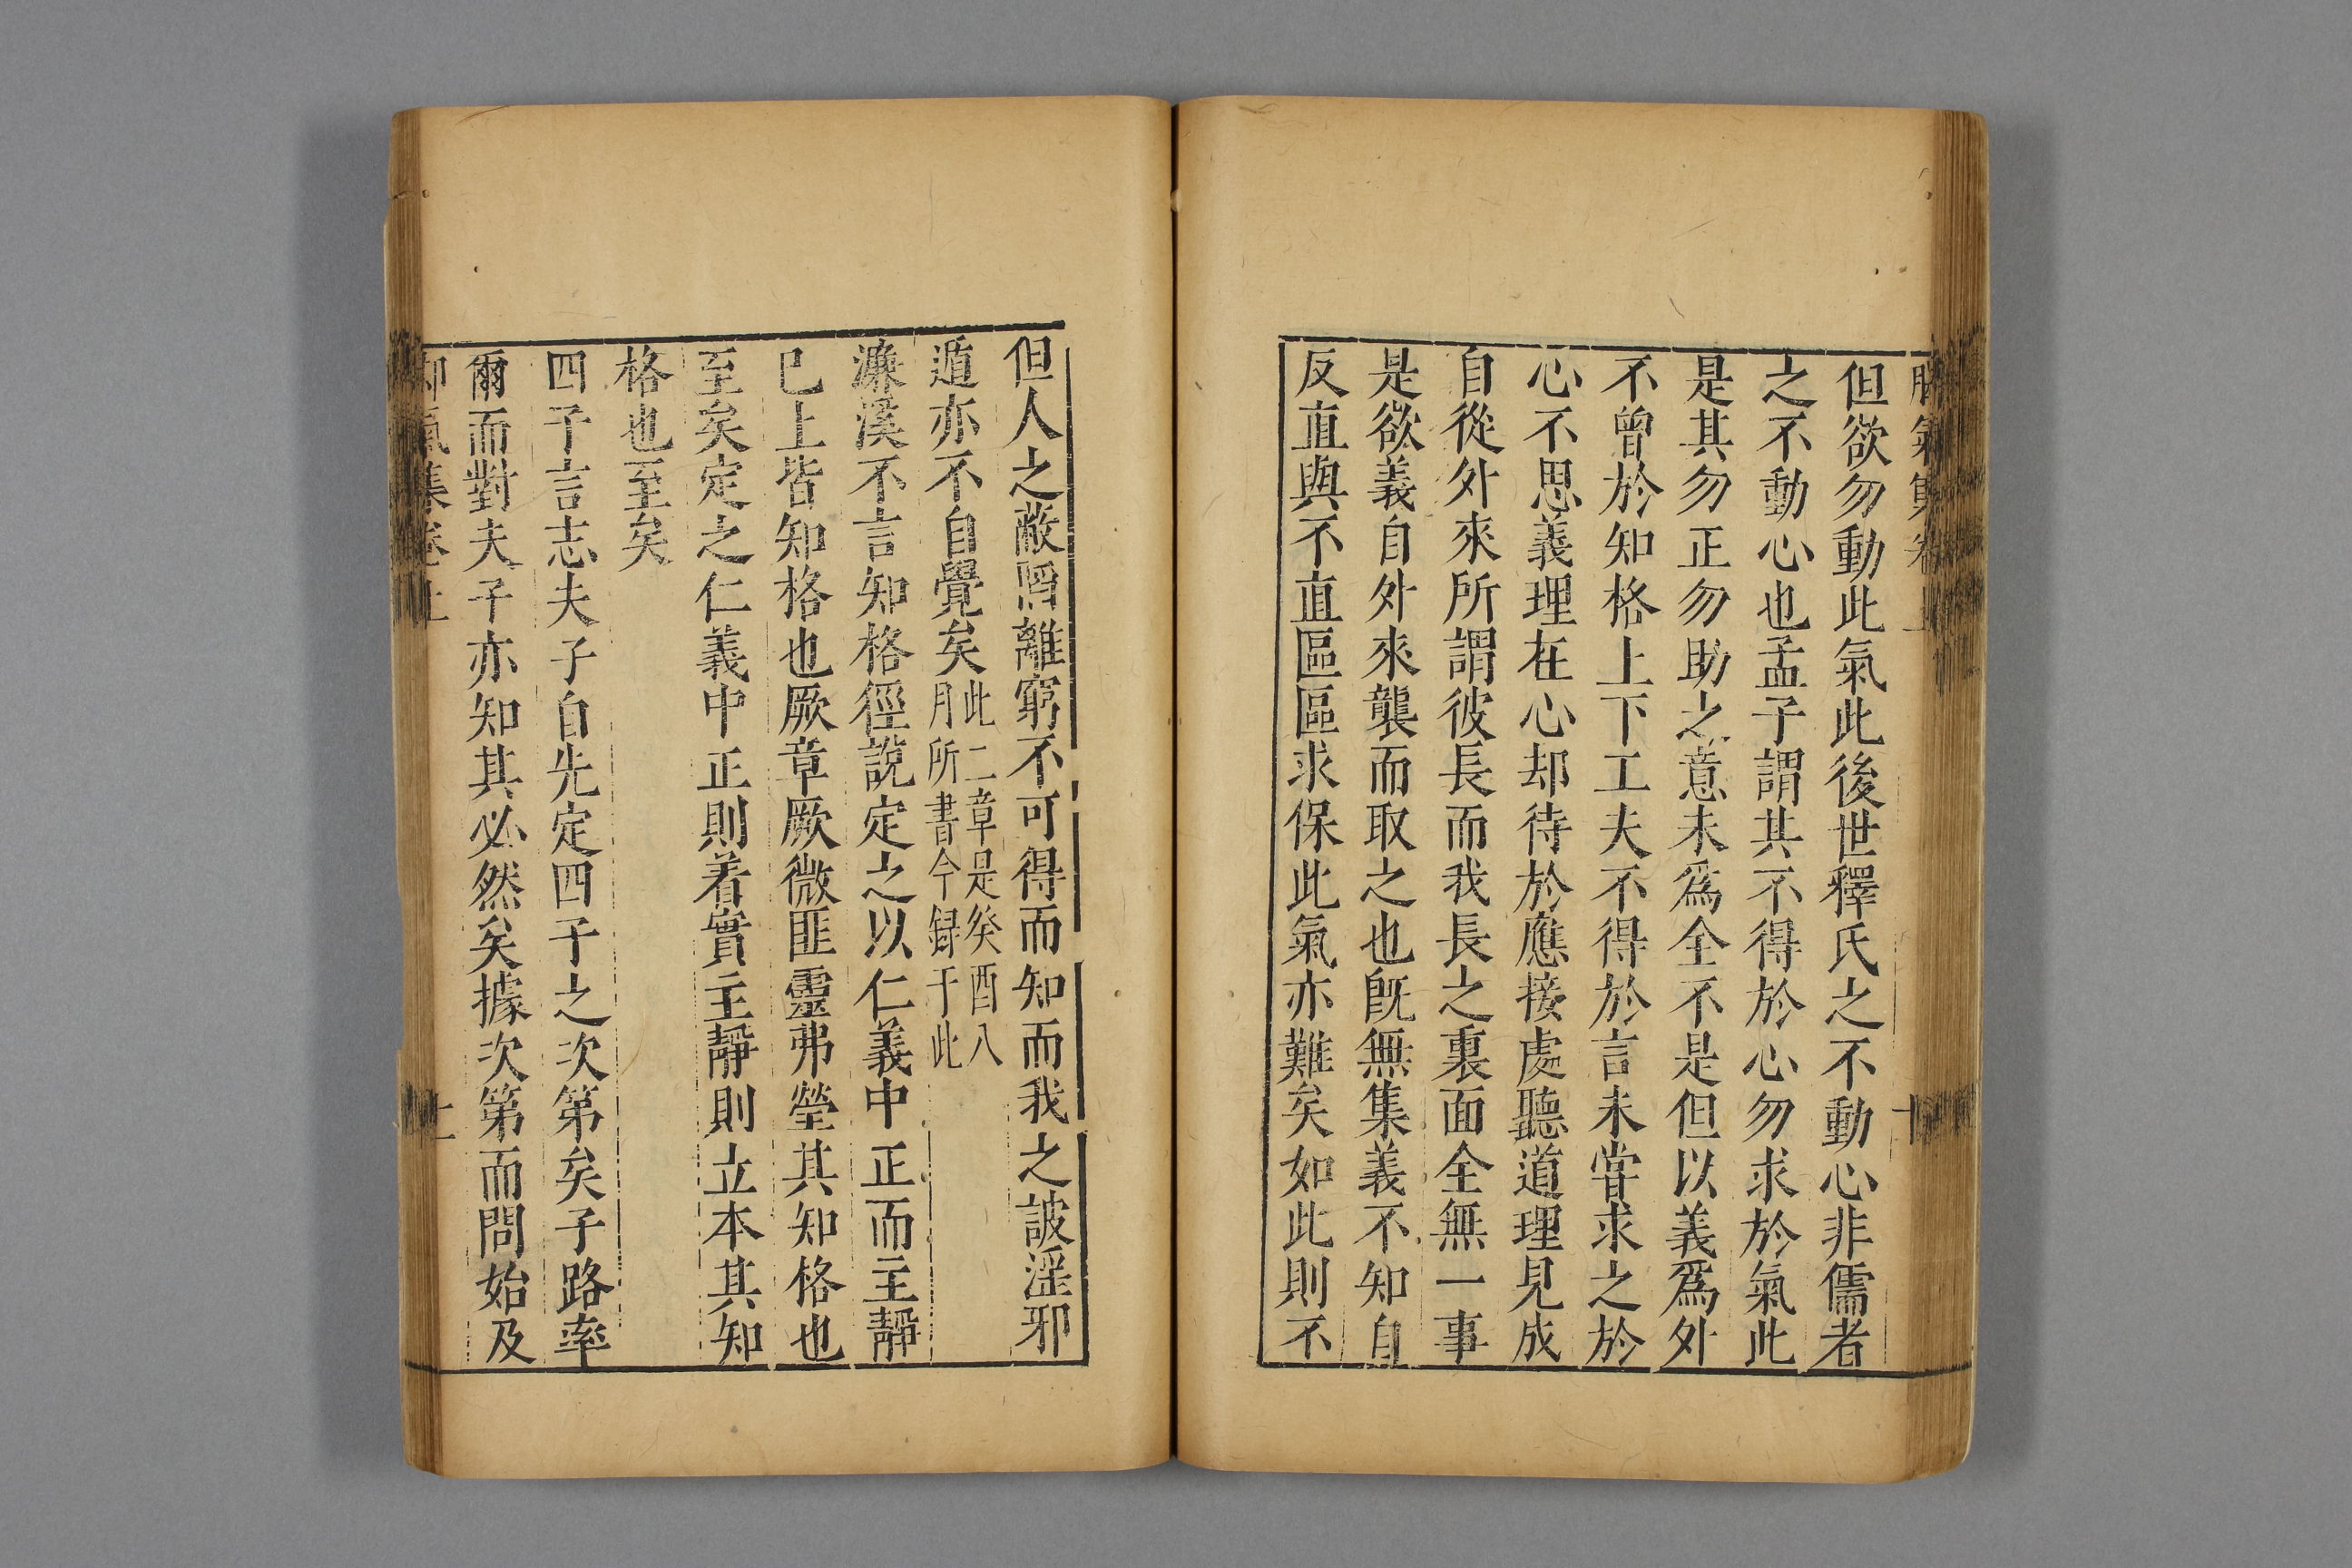 脚氣集卷上
十
但欲勿動此氣此後世釋氏之不動心非儒者
之不動心也孟子謂其不得於心勿求於氣此
是其勿正勿助之意未爲全不是但以義爲外
不曾於知格上下工夫不得於言未甞求之於
心不思義理在心却待於應接處聽道理見成
自從外來所謂彼長而我長之裏面全無一事
是欲義自外來襲而取之也旣無集義不知自
反直與不直區區求保此氣亦難矣如此則不
但人之蔽陷離窮不可得而知而我之詖淫邪
遁亦不自覺矣此二章是癸酉八
月所書今録于此
濂溪不言知格徑說定之以仁義中正而主靜
已上皆知格也厥章厥微匪靈弗瑩其知格也
至矣定之仁義中正則着實主靜則立本其知
格也至矣
四子言志夫子自先定四子之次第矣子路率
爾而對夫子亦知其必然矣據次第而問始及
脚氣集卷上